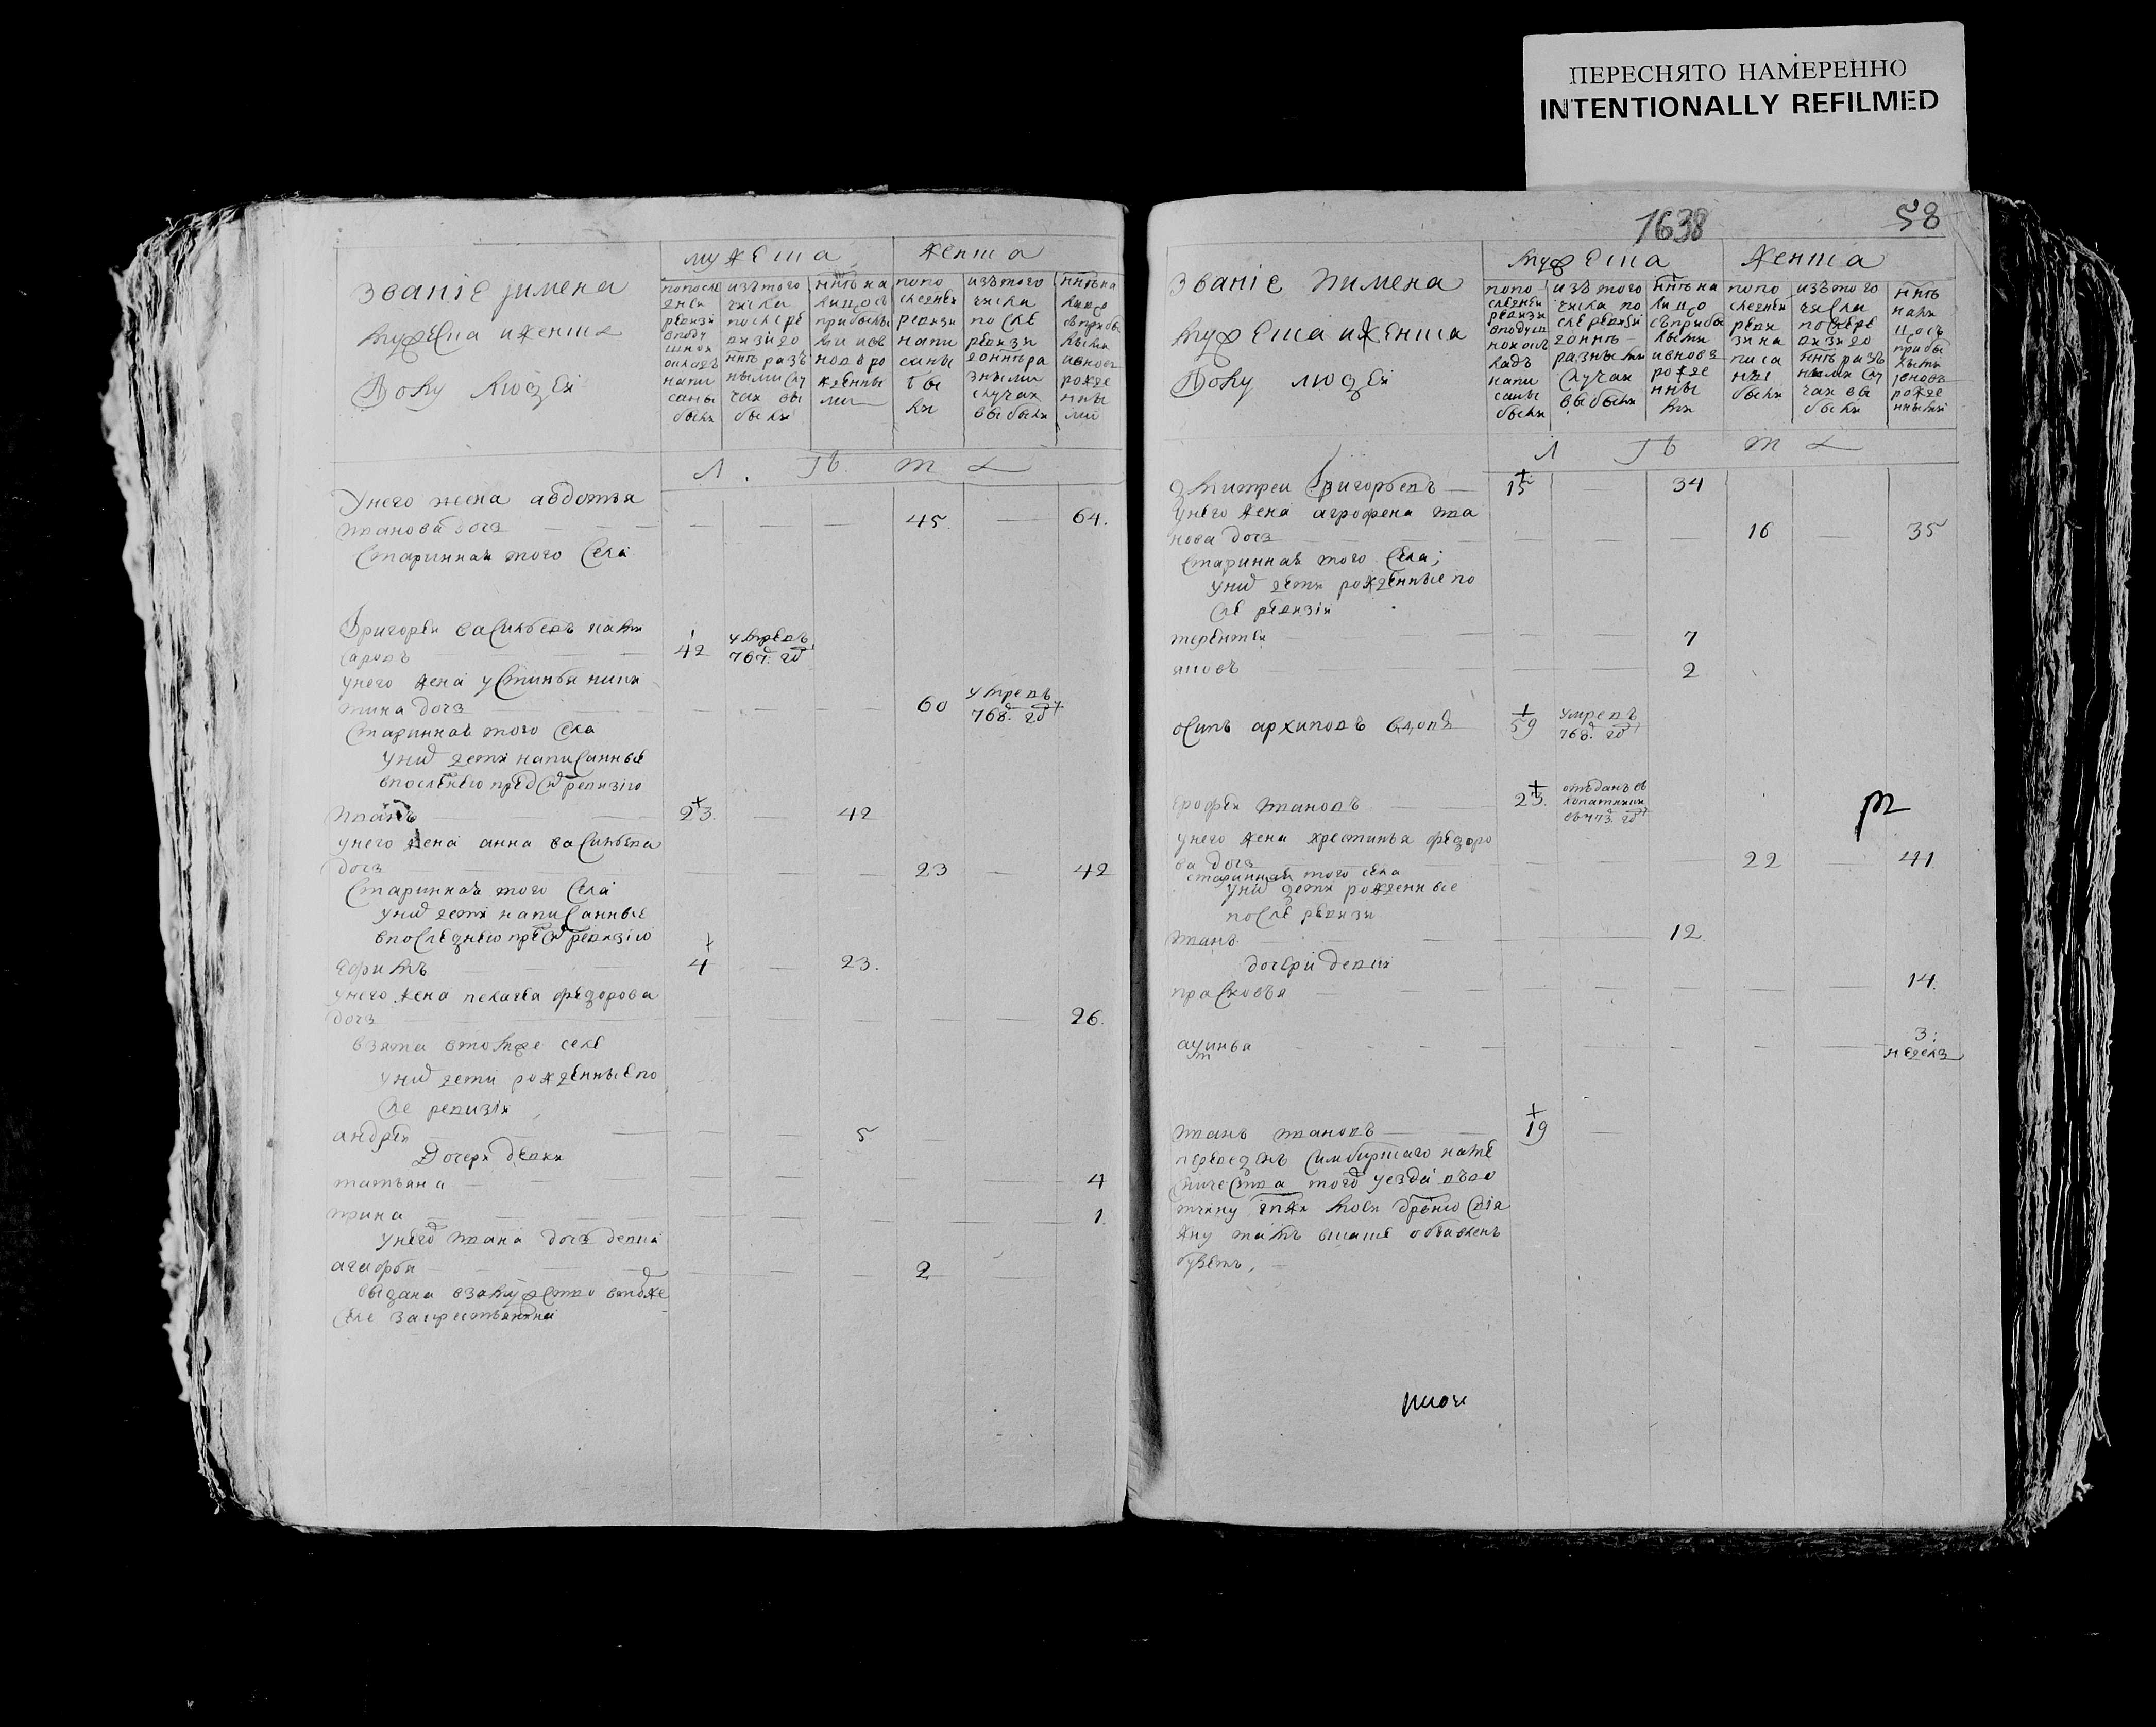 ПЕРЕСНЯТО НАМЕРЕННО
INTENTIONALLY REFILMED
1638
58
званіе имена
мужеска иженска
полу людей
мужеска
женска
попосле
дней
ревизи
вподу
шном
окладъ
напи
саны
были
изътого
числа
послере
визи до
ннѣ разъ
ными слу
чаи вы
были
ннѣ на
лицо съ
прибылы
ми ивъ
новь ро
жденны
ми
попо
следней
ревизи
напи
саны
бы
ли
изътого
числа
после
ревизи
доннѣ ра
зными
случаи
выбыли
ннѣ на
лицо
съприбы
лыми
ивновь
рожде
нны
ми
Л Ѣ Т А
Унего жена авдотья
иванова дочь 45 64
Старинная того села
Григорей васильевъ
42 умревъ 767. го
унего жена устинья ники
тина дочь 60 умревъ 768. го
Старинная того села
уних дети написанные
впоследнею пред сим ревизию
иванъ 23 42
унего жена анна васильева
дочь 23 42
Старинная того села
уних дети написанные
впоследнею пред сим ревизию
ефимъ 4 23
унего жена пелагея федорова
дочь 26
взята втомже селе
уних дети рожденные по
сле ревизіи
андрей 5
Дочери девки
татьяна 4
ирина 1
унего ивана дочь девка
агафья 2
выдана взамужство втомже
селе закрестьянина
званіе имена
мужеска иженска
полу людей
мужеска
женска
попо
следней
ревизи
вподуш
номокл
ладъ
напи
саны
были
изътого
числа по
сле ревизи
доннѣ
разными
случаи
выбыли
ннѣ на
лицо
съприбы
лыми
ивновь
рожде
нны
ми
попо
следней
реви
зи на
писа
ны
были
изътого
числа
послере
визи до
ннѣ разъ
ными слу
чаи вы
были
ннѣ
нали
цось
прибы
лыми
ивновь
рожде
нными
Л Ѣ Т А
дмитреи Григорьевъ 15 34
унего жена агрофена ива
нова дочь 16 35
Старинная того села;
уних дети рожденные по
сле ревизіи
терентеи 7
яковъ 2
осипъ архиповъ вдовъ 59 умревъ 768. го
ерофеи ивановъ 23 отъданъ въ
въ773. го
унего жена крестинья федоро
ва дочь 22 41
старинная того села
уних дети рожденные
после ревизи
иванъ 12
дочери девки
прасковья 14
акулина 3:
недель
иванъ ивановъ 19
переведенъ симбирскаго наме
сничества тогож уезда въво
тчину
тамъ объявленъ
будетъ,